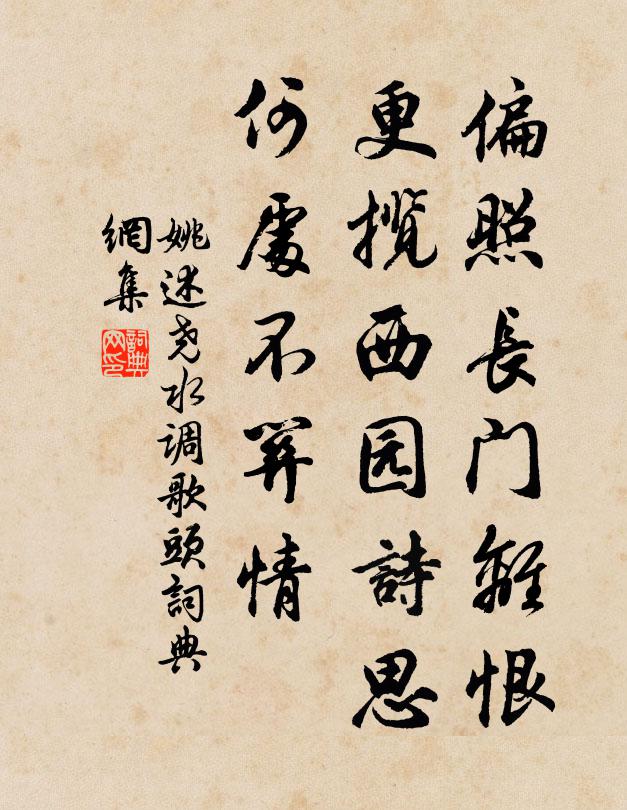 偏照長门離恨
更攬西园詩思
何處不關情
姚述尧水调歌頭詞典
網集
詞典
网印